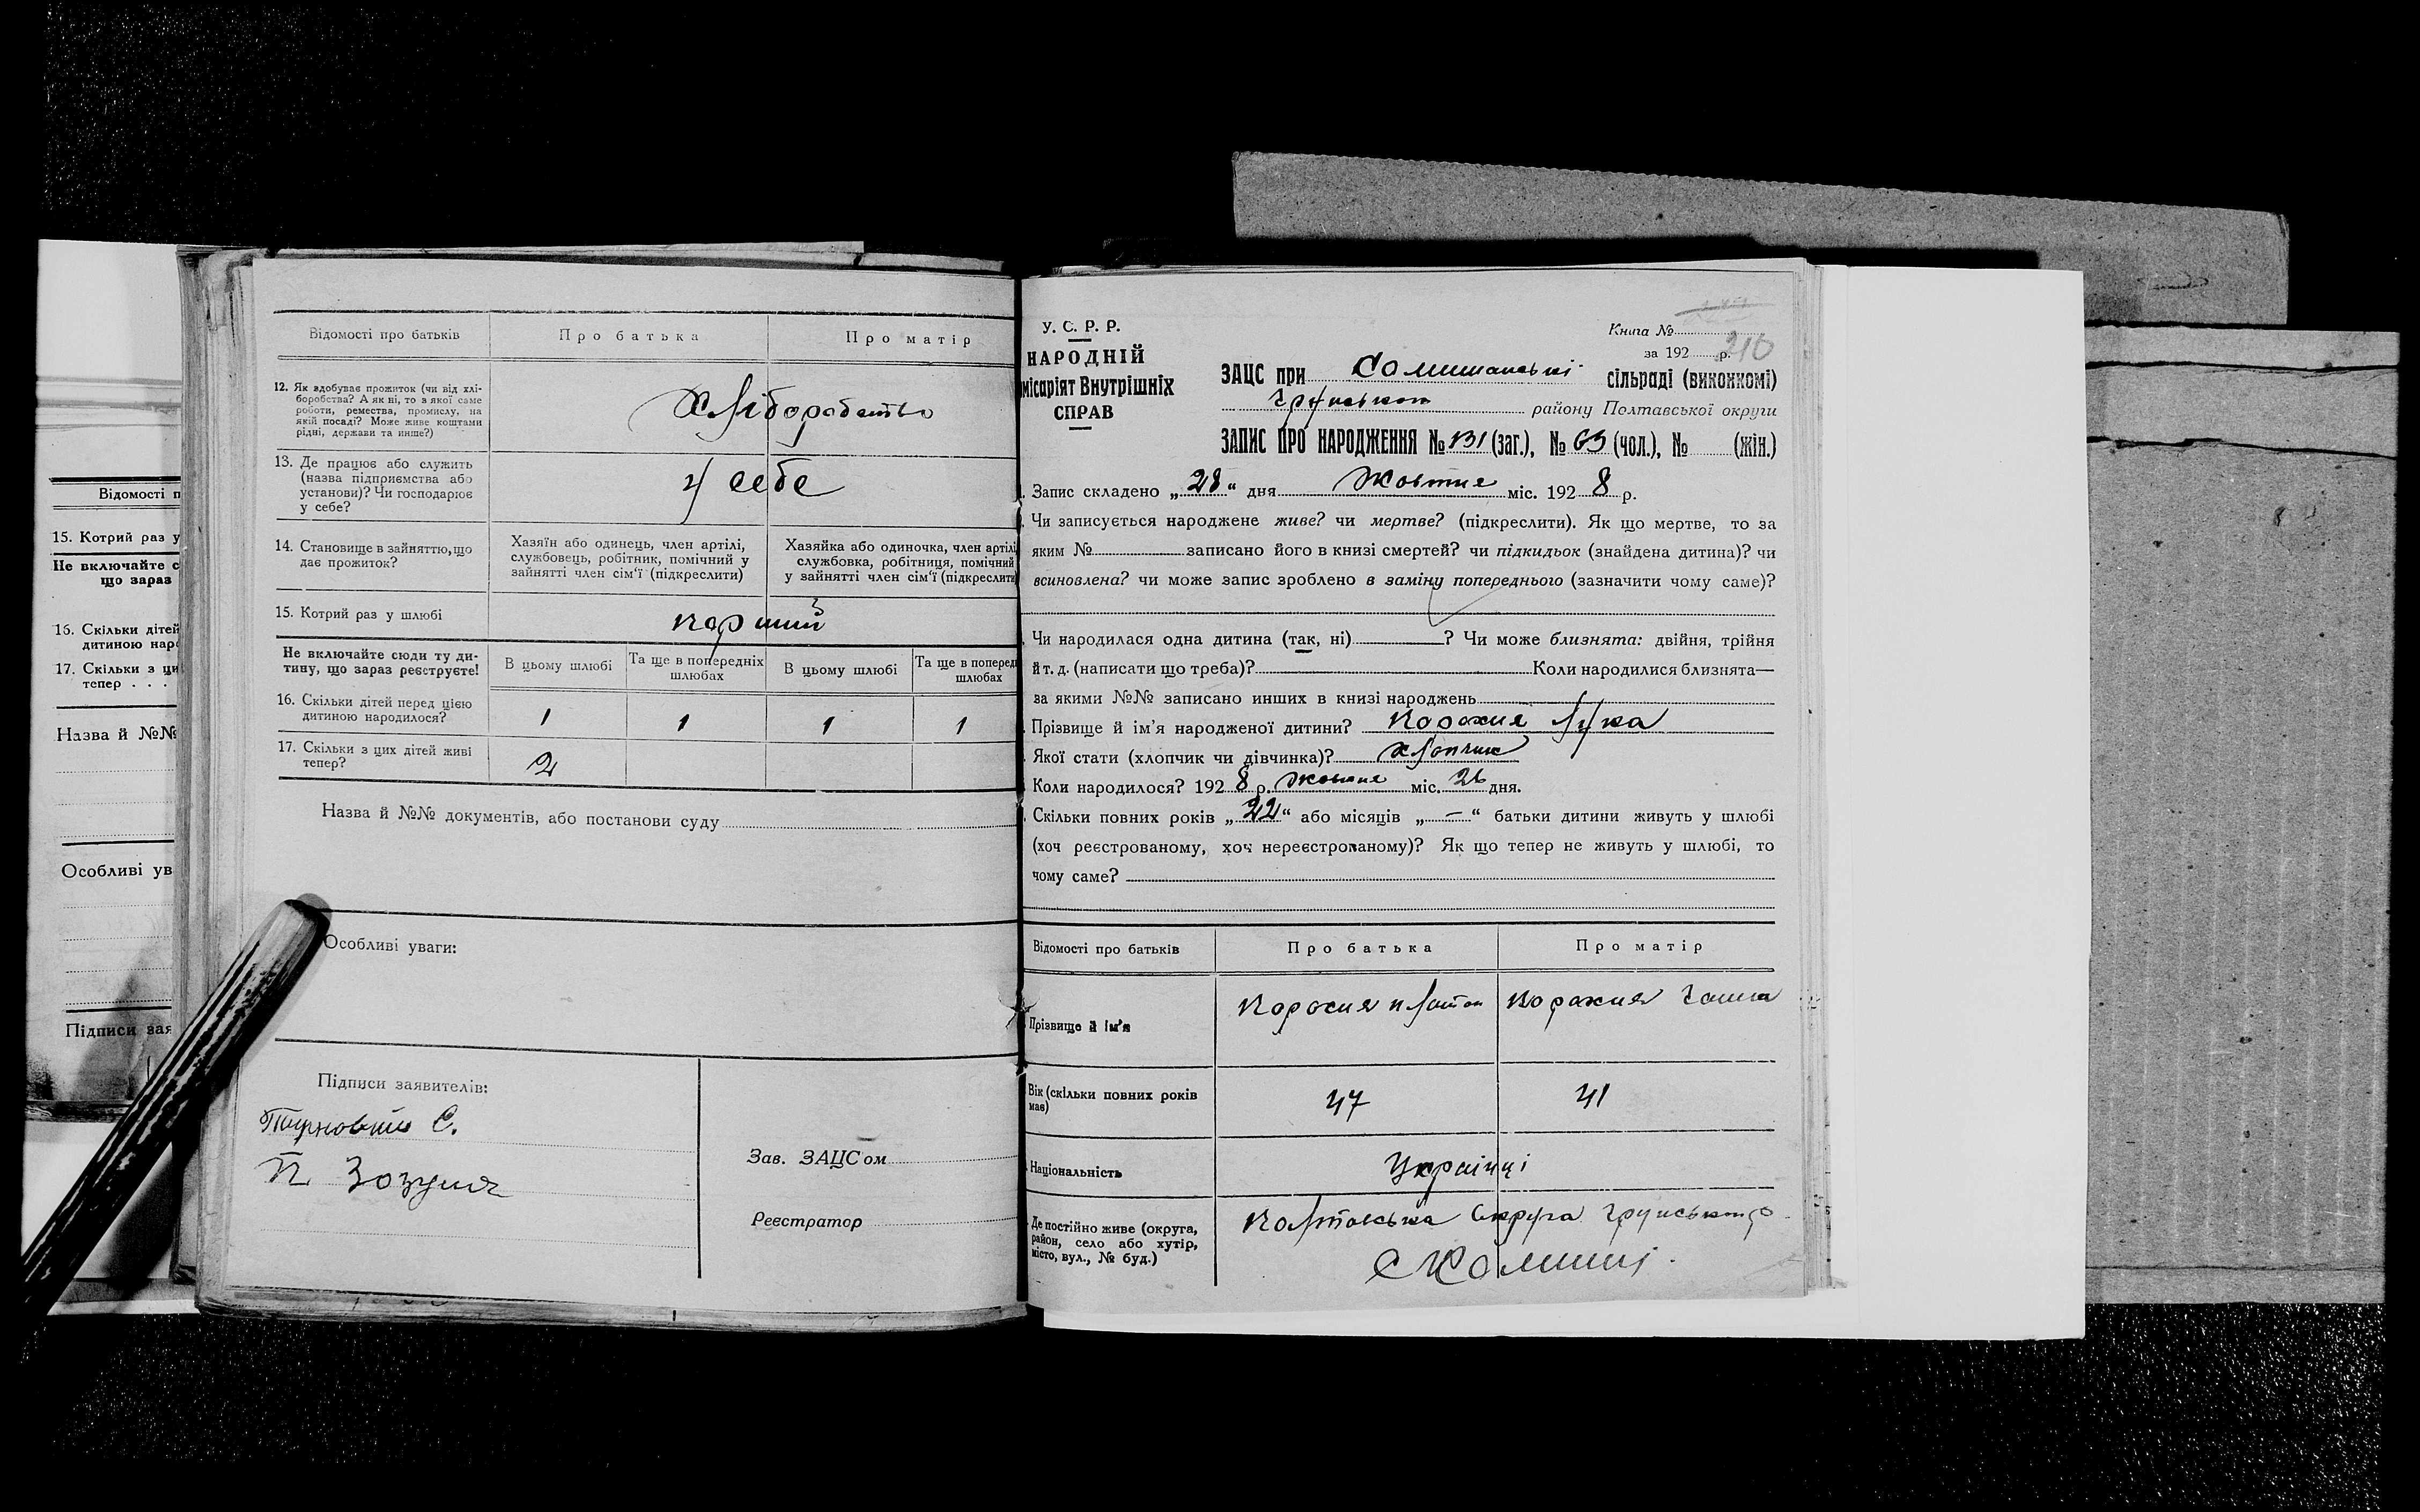 Відомості п
15. Котрий раз у
Не включайте с
що зараз
16. Скільки дітей
дитиною наро
17. Скільки з ци
тепер . . .
Назва й №№
Особливі ув
Підписи зая
Відомості про батьків
Про батька
Про матір
12. Як здобуває прожиток (чи від хлі-
боробства? А як ні, то з якої саме
роботи, ремества, промислу, на
якій посаді? Може живе коштами
рідні, держави та инше?)
Хліборобство
13. Де працює або служить
(назва підприємства або
установи)? Чи господарює
у себе?
у себе
14. Становище в зайняттю, що
дає прожиток?
Хазяїн або одинець, член артілі,
службовець, робітник, помічний у
зайнятті член сім'ї (підкреслити)
Хазяйка або одиночка, член артілі
службовка, робітниця, помічний
у зайнятті член сім'ї (підкреслити)
15. Котрий раз у шлюбі
Не включайте сюди ту ди-
тину, що зараз реєструєте!
В цьому шлюбі
Та ще в попередніх
шлюбах
В цьому шлюбі
Та ще в поперед
шлюбах
16. Скільки дітей перед цією
дитиною народилося?
1 1 1 1
17. Скільки з цих дітей живі
тепер?
2
Назва й №№ документів, або постанови суду
Особливі уваги:
Підписи заявителів:
С.
П. Зозуля
Зав. ЗАЦСом
Реєстратор
У. С. Р. Р.
НАРОДНІЙ
місаріят Внутрішніх
СПРАВ
Книга №
за 192 р.
210
ЗАЦС при сільраді (виконкомі)
району Полтавської округи
ЗАПИС ПРО НАРОДЖЕННЯ № 131 (заг.), № 63 (чол.), № (жін.)
Запис складено „28“ дня Жовтня міс. 1928 р.
Чи записується народжене живе? чи мертве? (підкреслити). Як що мертве, то за
яким № записано його в книзі смертей? чи підкидьок (знайдена дитина)? чи
всиновлена? чи може запис зроблено в заміну попереднього (зазначити чому саме)?
Чи народилася одна дитина (так, ні) ? Чи може близнята: двійня, трійня
й т. д. (написати що треба)? Коли народилися близнята—
за якими №№ записано инших в книзі народжень
Прізвище й ім'я народженої дитини? Лука
Якої стати (хлопчик чи дівчинка)? хлопчик
Коли народилося? 1928 р. Жовтня міс. 26 дня.
Скільки повних років „22“ або місяців „—“ батьки дитини живуть у шлюбі
(хоч реєстрованому, хоч нереєстрованому)? Як що тепер не живуть у шлюбі, то
чому саме?
Відомості про батьків
Про батька
Про матір
Прізвище й ім'я
Платон
Вік (скільки повних років
має)
47
41
Національність
Українці
Де постійно живе (округа,
район, село або хутір,
місто, вул., № буд.)
Полтавська Округа